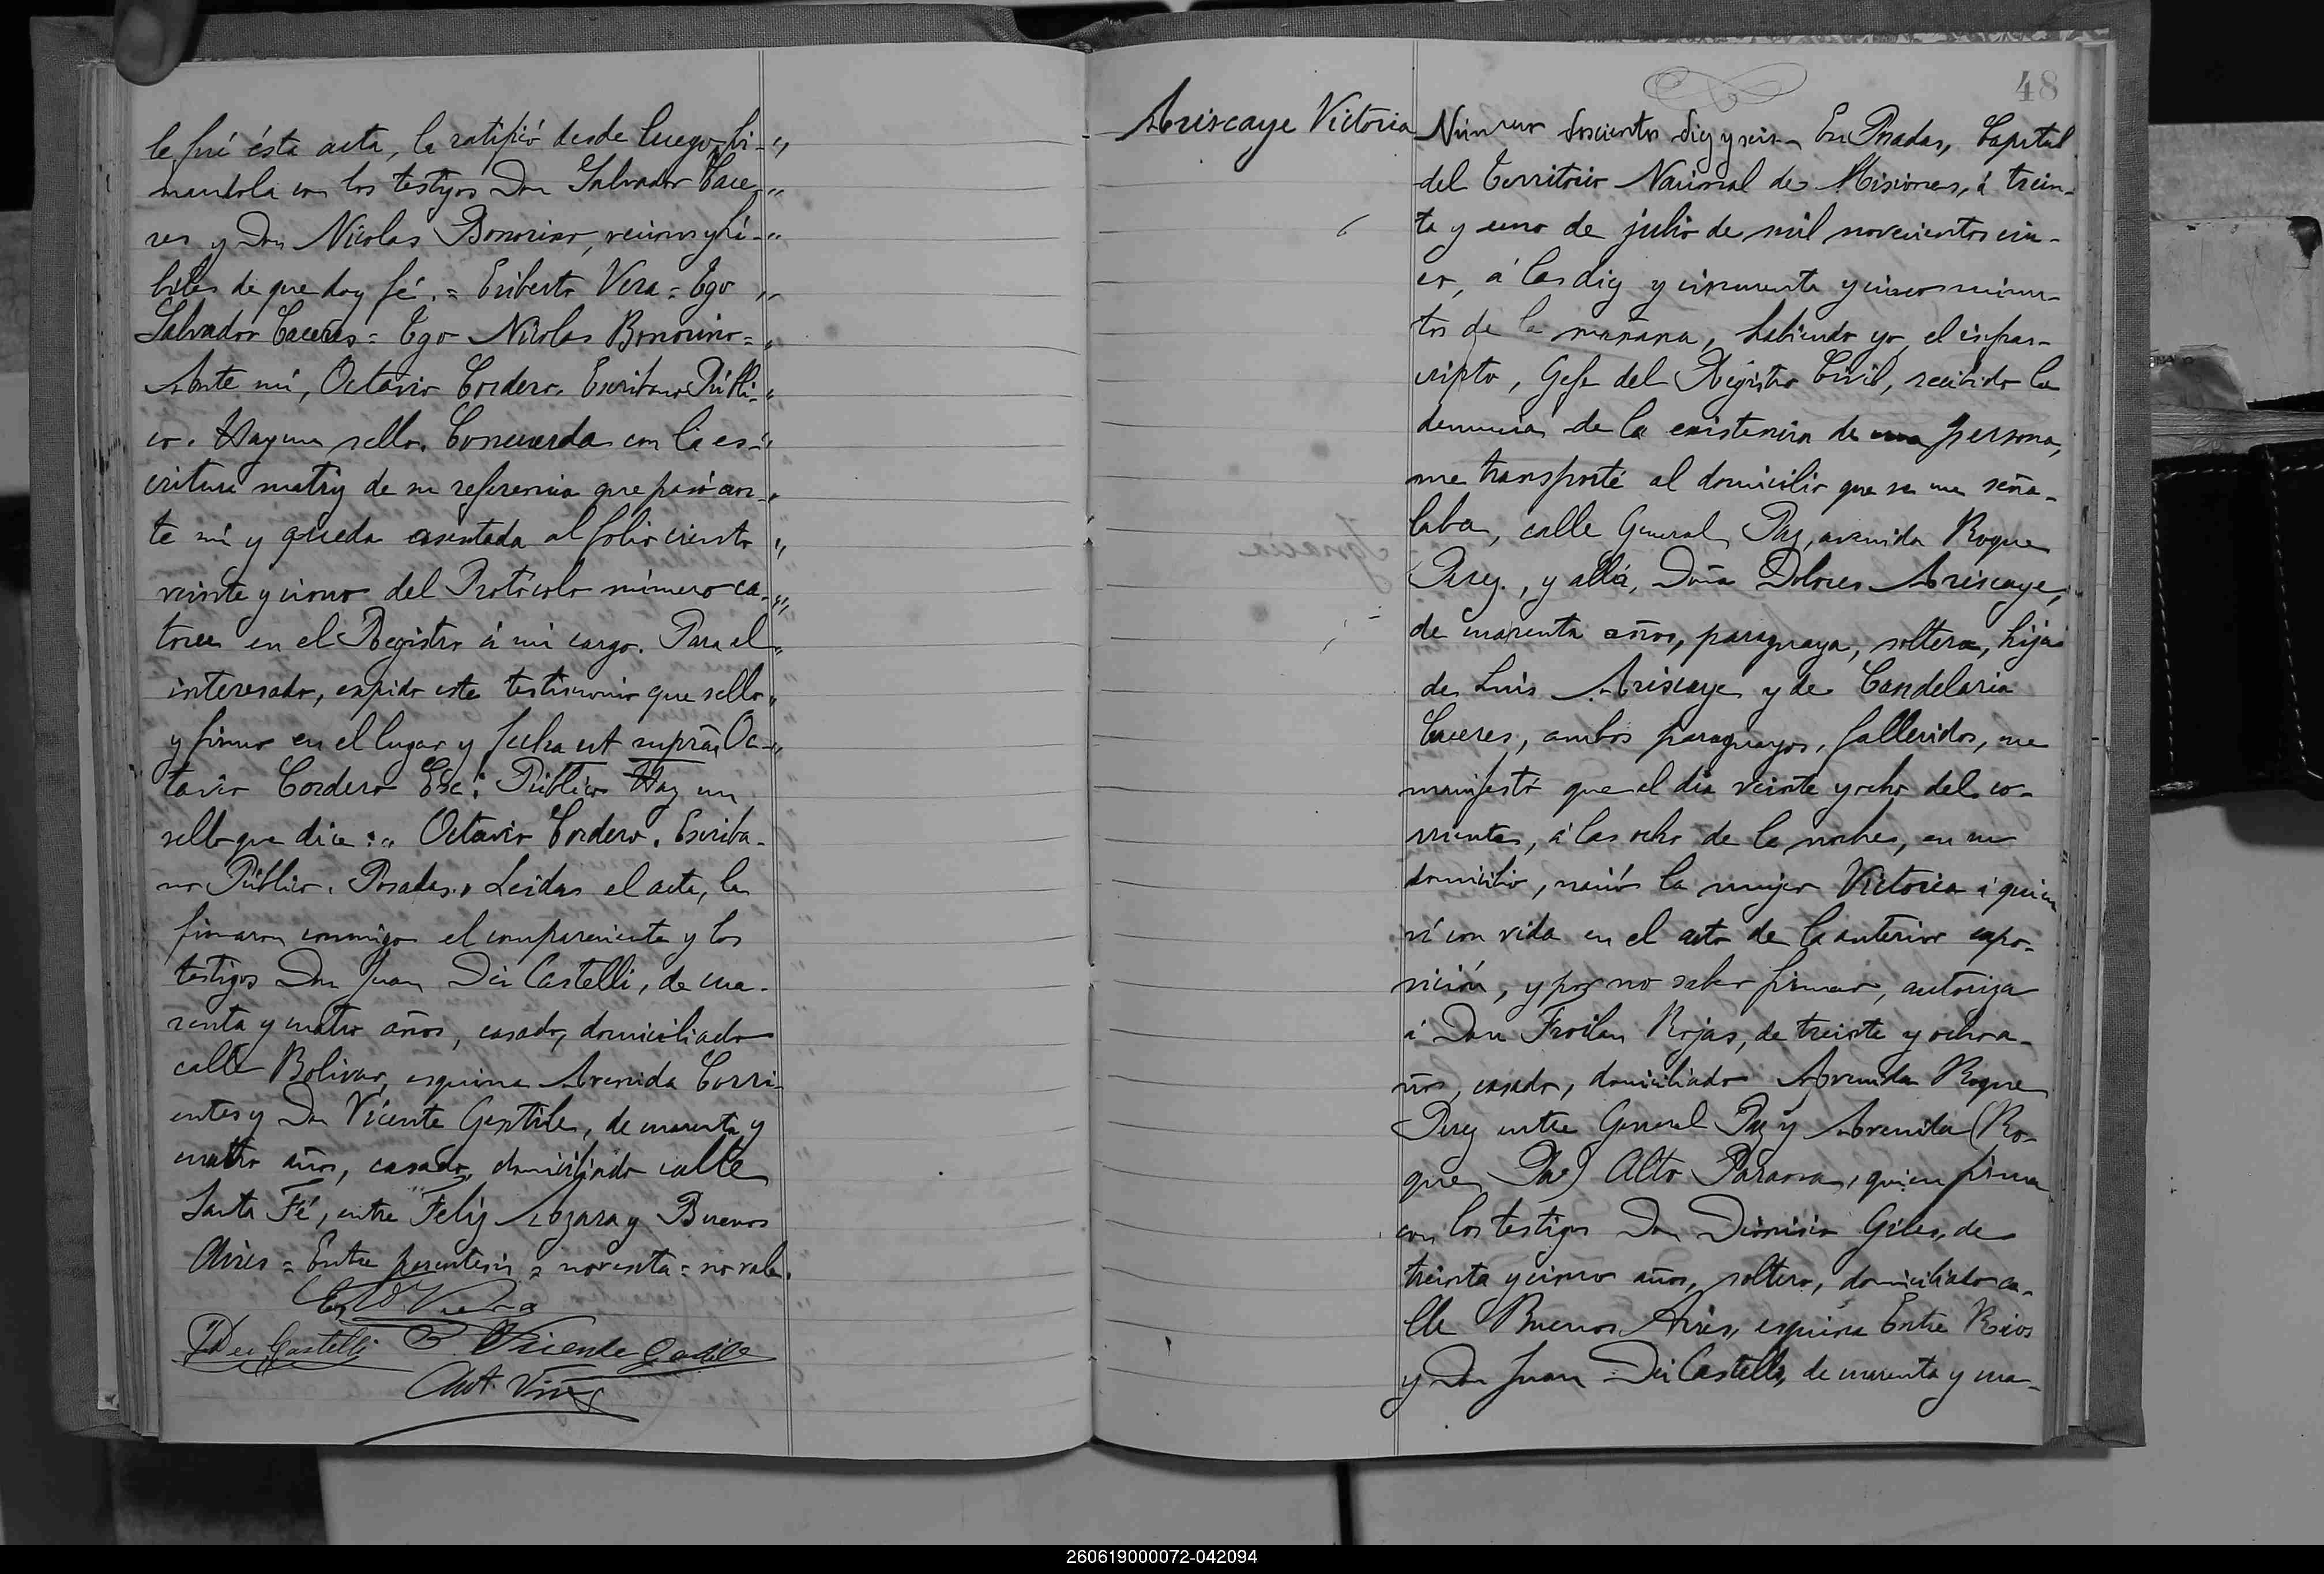 le fué ésta acta, la ratificó desde luego, fir-"
mandola con los testigos Don Salvador Cace-"
res y Don Nicolas Bonorino, vecinos y há-"
biles de que doy fé. = Eriberto Vera = Tgo "
Salvador Caceres = Tgo Nicolas Bonorino = "
Ante mi, Octavio Cordero. Escribano Públi-"
co. Hay un sello. Concuerda con la es-"
critura matriz de su referencia que pasó an-"
te mi y queda asentada al folio ciento "
veinte y cinco del Protócolo número ca-"
torce en el Registro á mi cargo. Para el "
interesado, expido este testimonio que sello "
y firmo en el lugar y fecha ut supra, Oc-"
tavio Cordero Esc: Público Hay un
sello que dice: " Octavio Cordero. Escriba-
no Público. Posadas. " Leida el acta, la
firmaron conmigo el compareciente y los
testigos Don Juan Dei Castelli, de cua-
renta y cuatro años, casado, domiciliado
calle Bolivar, esquina Avenida Corri-
entes y Don Vicente Gentile, de cuarenta y
cuatro años, casado, domiciliado calle
Santa Fé, entre Feliz Azara y Buenos
Aires = Entre parentesis = noventa = no vale.
Vera
J Dei Castelli Vicente Gentile
Ant.
48
Ariscaye Victoria
Número doscientos diez y seis. En Posadas, Capital
del Territorio Nacional de Misiones, á trein-
ta y uno de julio de mil novecientos cin-
co, á las diez y cincuenta y cinco minu-
tos de la mañana, habiendo yo, el infras-
cripto, Gefe del Registro Civil, recibido la
denuncia de la existencia de una persona,
me transporté al domicilio que se me seña-
laba, calle General Paz, avenida Roque
Perez, y allá, Doña Dolores Ariscaye,
de cuarenta años, paraguaya, soltera, hija
de Luis Ariscaye y de Candelaria
Caceres, ambos paraguayos, fallecidos, me
manifestó que el dia veinte y ocho del co-
rriente, á las ocho de la noche, en su
domicilio, nació la mujer Victoria á quien
ví con vida en el acto de la anterior expo-
sición, y por no saber firmar, autoriza
á Don Froilan Rojas, de treinta y ocho a-
ños, casado, domiciliado Avenida Roque
Perez entre General Paz y Avenida (Ro-
que Pe) Alto Parana, quien firma
con los testigos Don Dionisio Giles, de
treinta y cinco años, soltero, domiciliado ca-
lle Buenos Aires, esquina Entre Rios
y Don Juan Dei Castelli, de cuarenta y cua-
260619000072-042094